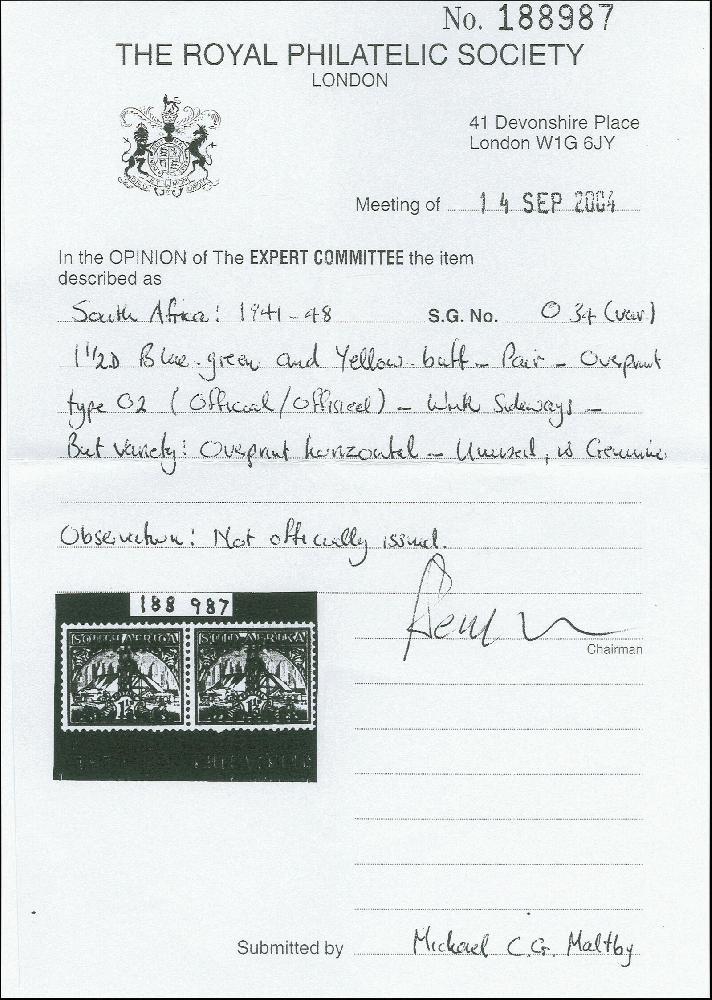 No. 188987
THE ROYAL PHILATELIC SOCIETY
LONDON
41 Devonshire Place
London W1G 6JY
Meeting of 14 SEP 2004
In the OPINION of The EXPERT COMMITTEE the item
described as
South Africa: 1941-48 S.G. No. O 34 (var)
1 1/2D Blue-green and Yellow-buff - Pair - Overprint
type O2 (Official/Offisieel) - Wmk Sideways -
But variety: Overprint horizontal - Unused, is Genuine.
Observation: Not officially issued.
188 987
SOUTH AFRICA SUID-AFRIKA
Chairman
Submitted by Michael C.G. Maltby